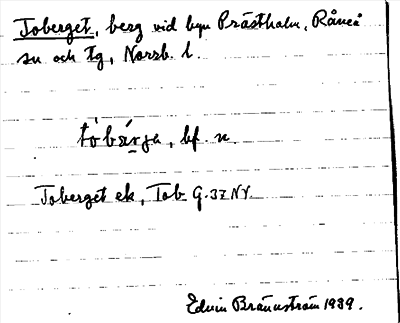 Toberget, berg vid byn Prästholm, Råneå
sn och tg, Norrb. l.
tóbä̀rjɐ, bf. n.
Toberget ek, Tob G. 3z NV
Edvin Brännström 1939.